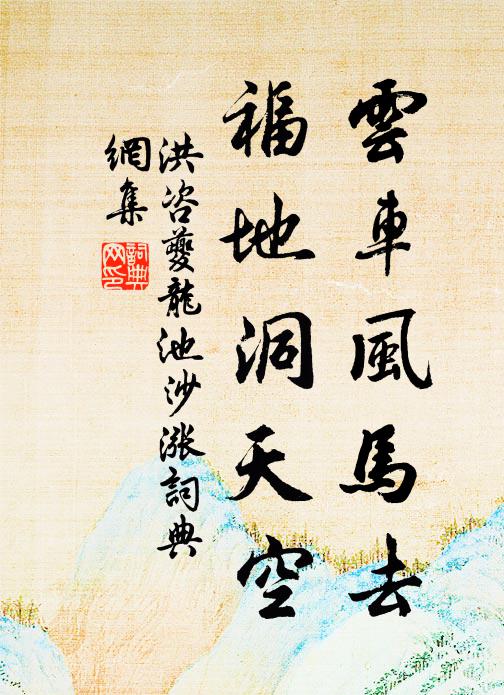 雲車風馬去
福地洞天空
洪咨夔龍池沙漲詞典
網集
詞典
网印